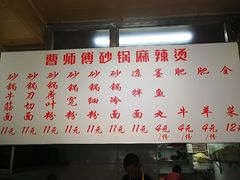 曹师傅砂锅麻辣烫
砂锅牛筋面 11元
砂锅刀切面 11元
砂锅荷叶面 11元
砂锅宽粉 11元
砂锅细粉 11元
砂锅冷面 11元
凉拌 11元
鱼丸 4元/份
肥牛 4元/份
肥羊 4元/份
菜 12元